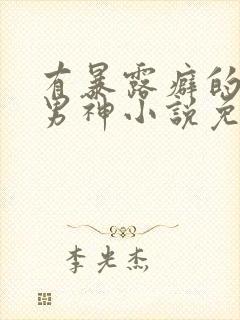 有暴露癖的
男神小说免
李光杰